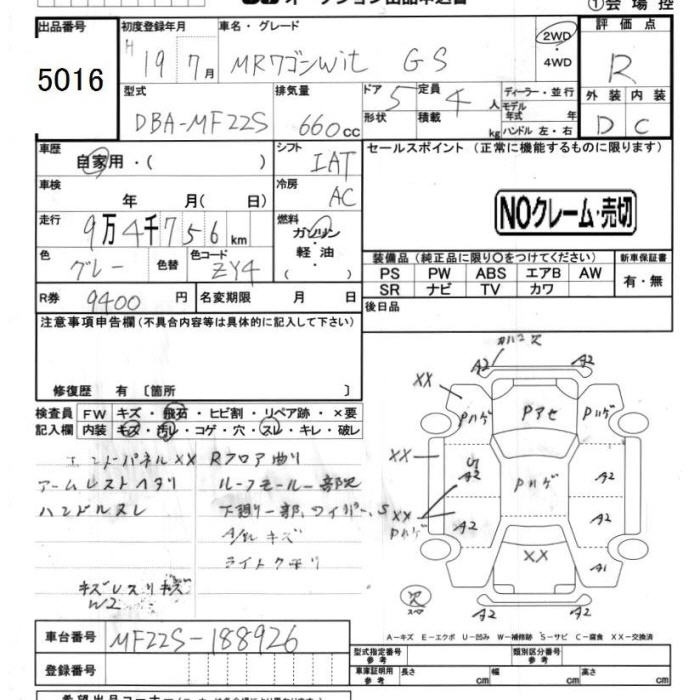 オークション出品申込書
①会場控
出品番号
5016
初度登録年月
H19 7月
車名・グレード
MRワゴンwit GS
2WD
・
4WD
評価点
R
外装 内装
D C
型式
DBA-MF22S
排気量
660cc
ドア 5
定員 4人
形状
積載 kg
ディーラー・並行
モデル年式 年
ハンドル 左・右
車歴
自家用・( )
シフト
IAT
セールスポイント (正常に機能するものに限ります)
車検
年 月( 日)
冷房
AC
NOクレーム・売切
走行
9万4千756km
燃料
ガソリン
・
軽油
・
( )
色
グレー
色替
色コード
ZY4
装備品(純正品に限り〇をつけてください)
新車保証書
PS PW ABS エアB AW
SR ナビ TV カワ
有・無
R券 9400円
名変期限 月 日
後日品
注意事項申告欄(不具合内容等は具体的に記入して下さい)
修復歴 有 〔箇所 〕
検査員
記入欄
FW キズ・飛石・ヒビ割・リペア跡・×要
内装 キズ・汚レ・コゲ・穴・スレ・キレ・破レ
エンドパネルXX
アームレストヘタリ
ハンドルスレ
Rフロア曲リ
ルーフモール一部欠
下廻り一部、ワイパー、S
A/W キズ
ライトクモリ
W2
A2 A2
XX
Pハゲ Pアセ Pハゲ
XX
A2 Pハゲ A2
XX
Pハゲ
A2 A2
XX
A1
欠
スペア
A2 A2
A-キズ E-エクボ U-凹み W-補修跡 S-サビ C-腐食 XX-交換済
車台番号 MF22S-188926
登録番号
型式指定番号
参考
類別区分番号
参考
車庫証明用
参考
長さ cm 幅 cm 高さ cm
希望出品コーナー